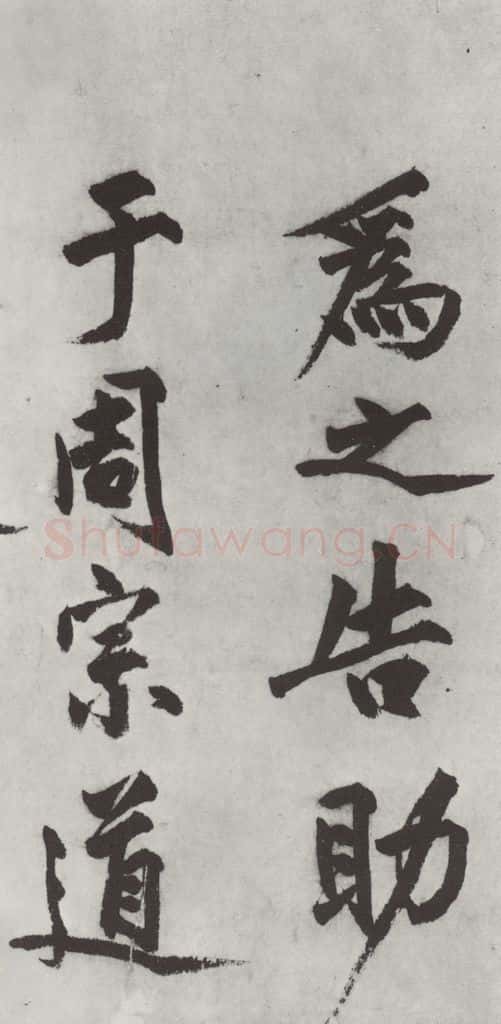 為之告助
于周宗道
Shufawang.CN